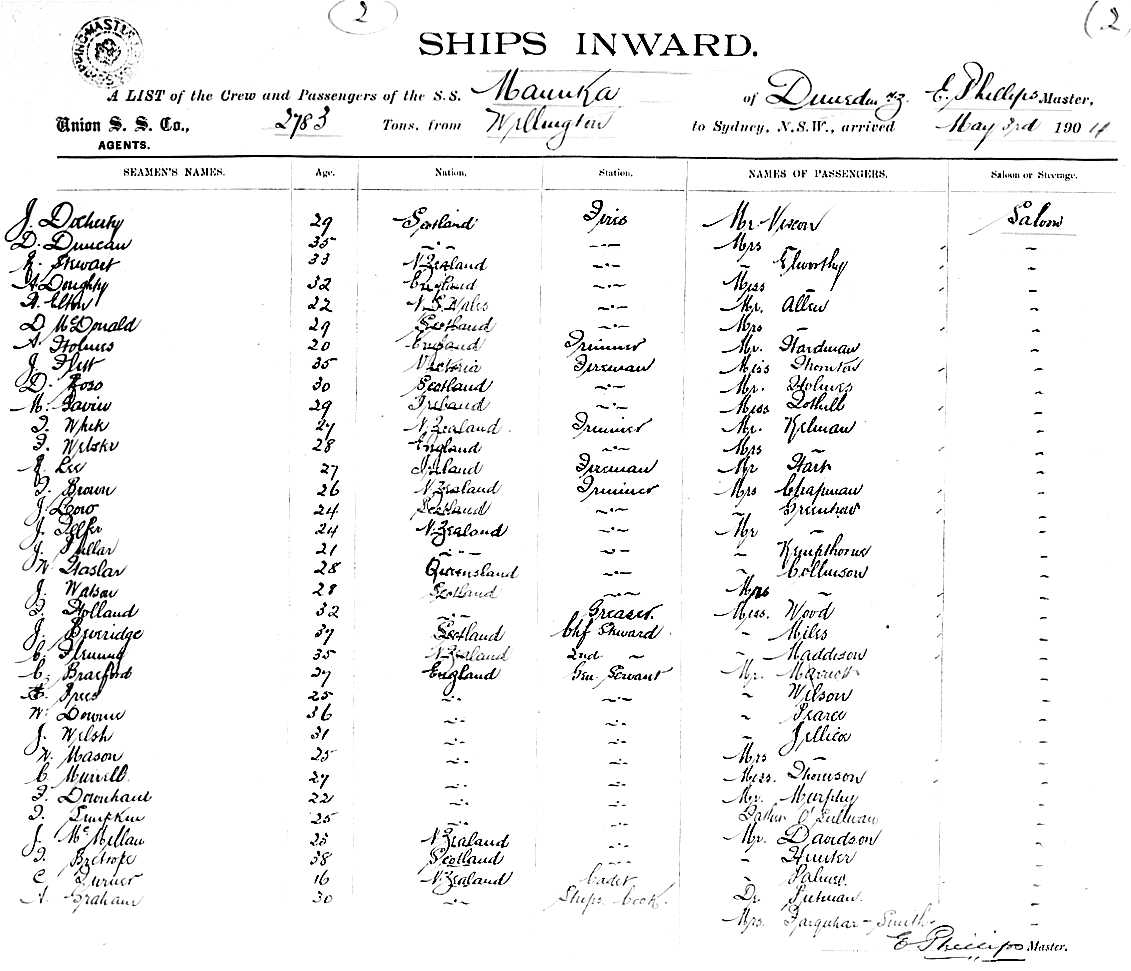 2
(2
SHIPS INWARD.
A LIST of the Crew and Passengers of the S.S. Maunka of Dunedin N.Z. E. Phillips Master,
Union S. S. Co., 2783 Tons, from Wellington to Sydney, N.S.W., arrived May 3rd 1904
AGENTS.
SEAMEN'S NAMES. Age. Nation. Station. NAMES OF PASSENGERS. Saloon or Steerage.
J. Docherty 29 Scotland Fires Mr Saloon
D. Duncan 35 -"- -"- Mrs "
Stewart 33 N Zealand -"- " Elworthy "
A Doughty 32 England -"- Miss " "
A. Elton 22 N S Wales -"- Mr. Allen "
D McDonald 29 Scotland -"- Mrs " "
A. Holmes 20 England Trimmer Mr. Hardman "
J. Flett 35 Victoria Fireman Miss Thornton "
D. Ross 30 Scotland -"- Mr. Holmes "
M. Gavin 29 Ireland -"- Miss "
27 N Zealand Trimmer Mr. Kilman "
28 England -"- Mrs " "
Lee 27 Ireland Fireman Mr Hart "
T. Brown 26 N Zealand Trimmer Mrs Chapman "
J. 24 Scotland -"- " "
J. Telfer 24 N. Zealand -"- Mr " "
J. 21 -"- -"- " Kempthorne "
W. Haslar 28 Queensland -"- " Collinson "
J. Watson 28 Scotland -"- Mrs " "
T. Holland 32 -"- Greaser. Miss. Wood "
J. Beveridge 37 Scotland Chf Steward " Miles "
C. Fleming 35 N Zealand 2nd " " Maddison "
C. Bradford 27 England Gen. Servant Mr. Marriott "
25 -"- -"- " Wilson "
W. Downie 36 -"- -"- " Pearce "
J. Welsh 31 -"- -"- " Jellicoe "
W. Mason 25 -"- -"- Mrs " "
C Murrell. 27 -"- -"- Miss. Thomson "
T. Downham 22 -"- -"- Mr. Murphy "
T. Limpkin 25 -"- -"- Father O'Sullivan "
J. McMillan 23 N Zealand -"- Mr. Davidson "
38 Scotland -"- " Hunter "
C Turner 16 N. Zealand Cadet " Palmer "
A Graham 30 -"- Ships Cook. Dr Putman. "
Mrs. Farquhar-Smith "
E Phillips Master.